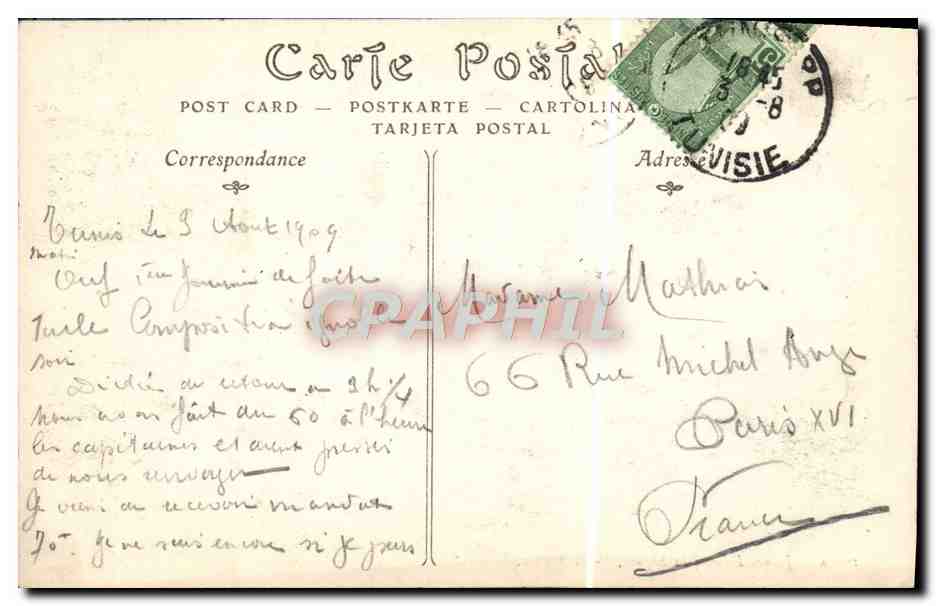 Carte Postale
POST CARD — POSTKARTE — CARTOLINA
TARJETA POSTAL
Correspondance
Adresse
18 45
3 -8
09
TUNISIE
Tunis le 3 Août 1909
matin
Ouf 1ère journée de faite
Composition
soir
Dictée de retour a 2h 1/4
nous avons fait du 60 à l'heure
les capitaines etaient pressés
de nous renvoyer
Je viens de recevoir mandat
70f. Je ne sais encore si je pars
Madame Mathias
66 Rue Michel Ange
Paris XVI
France
CPAPHIL